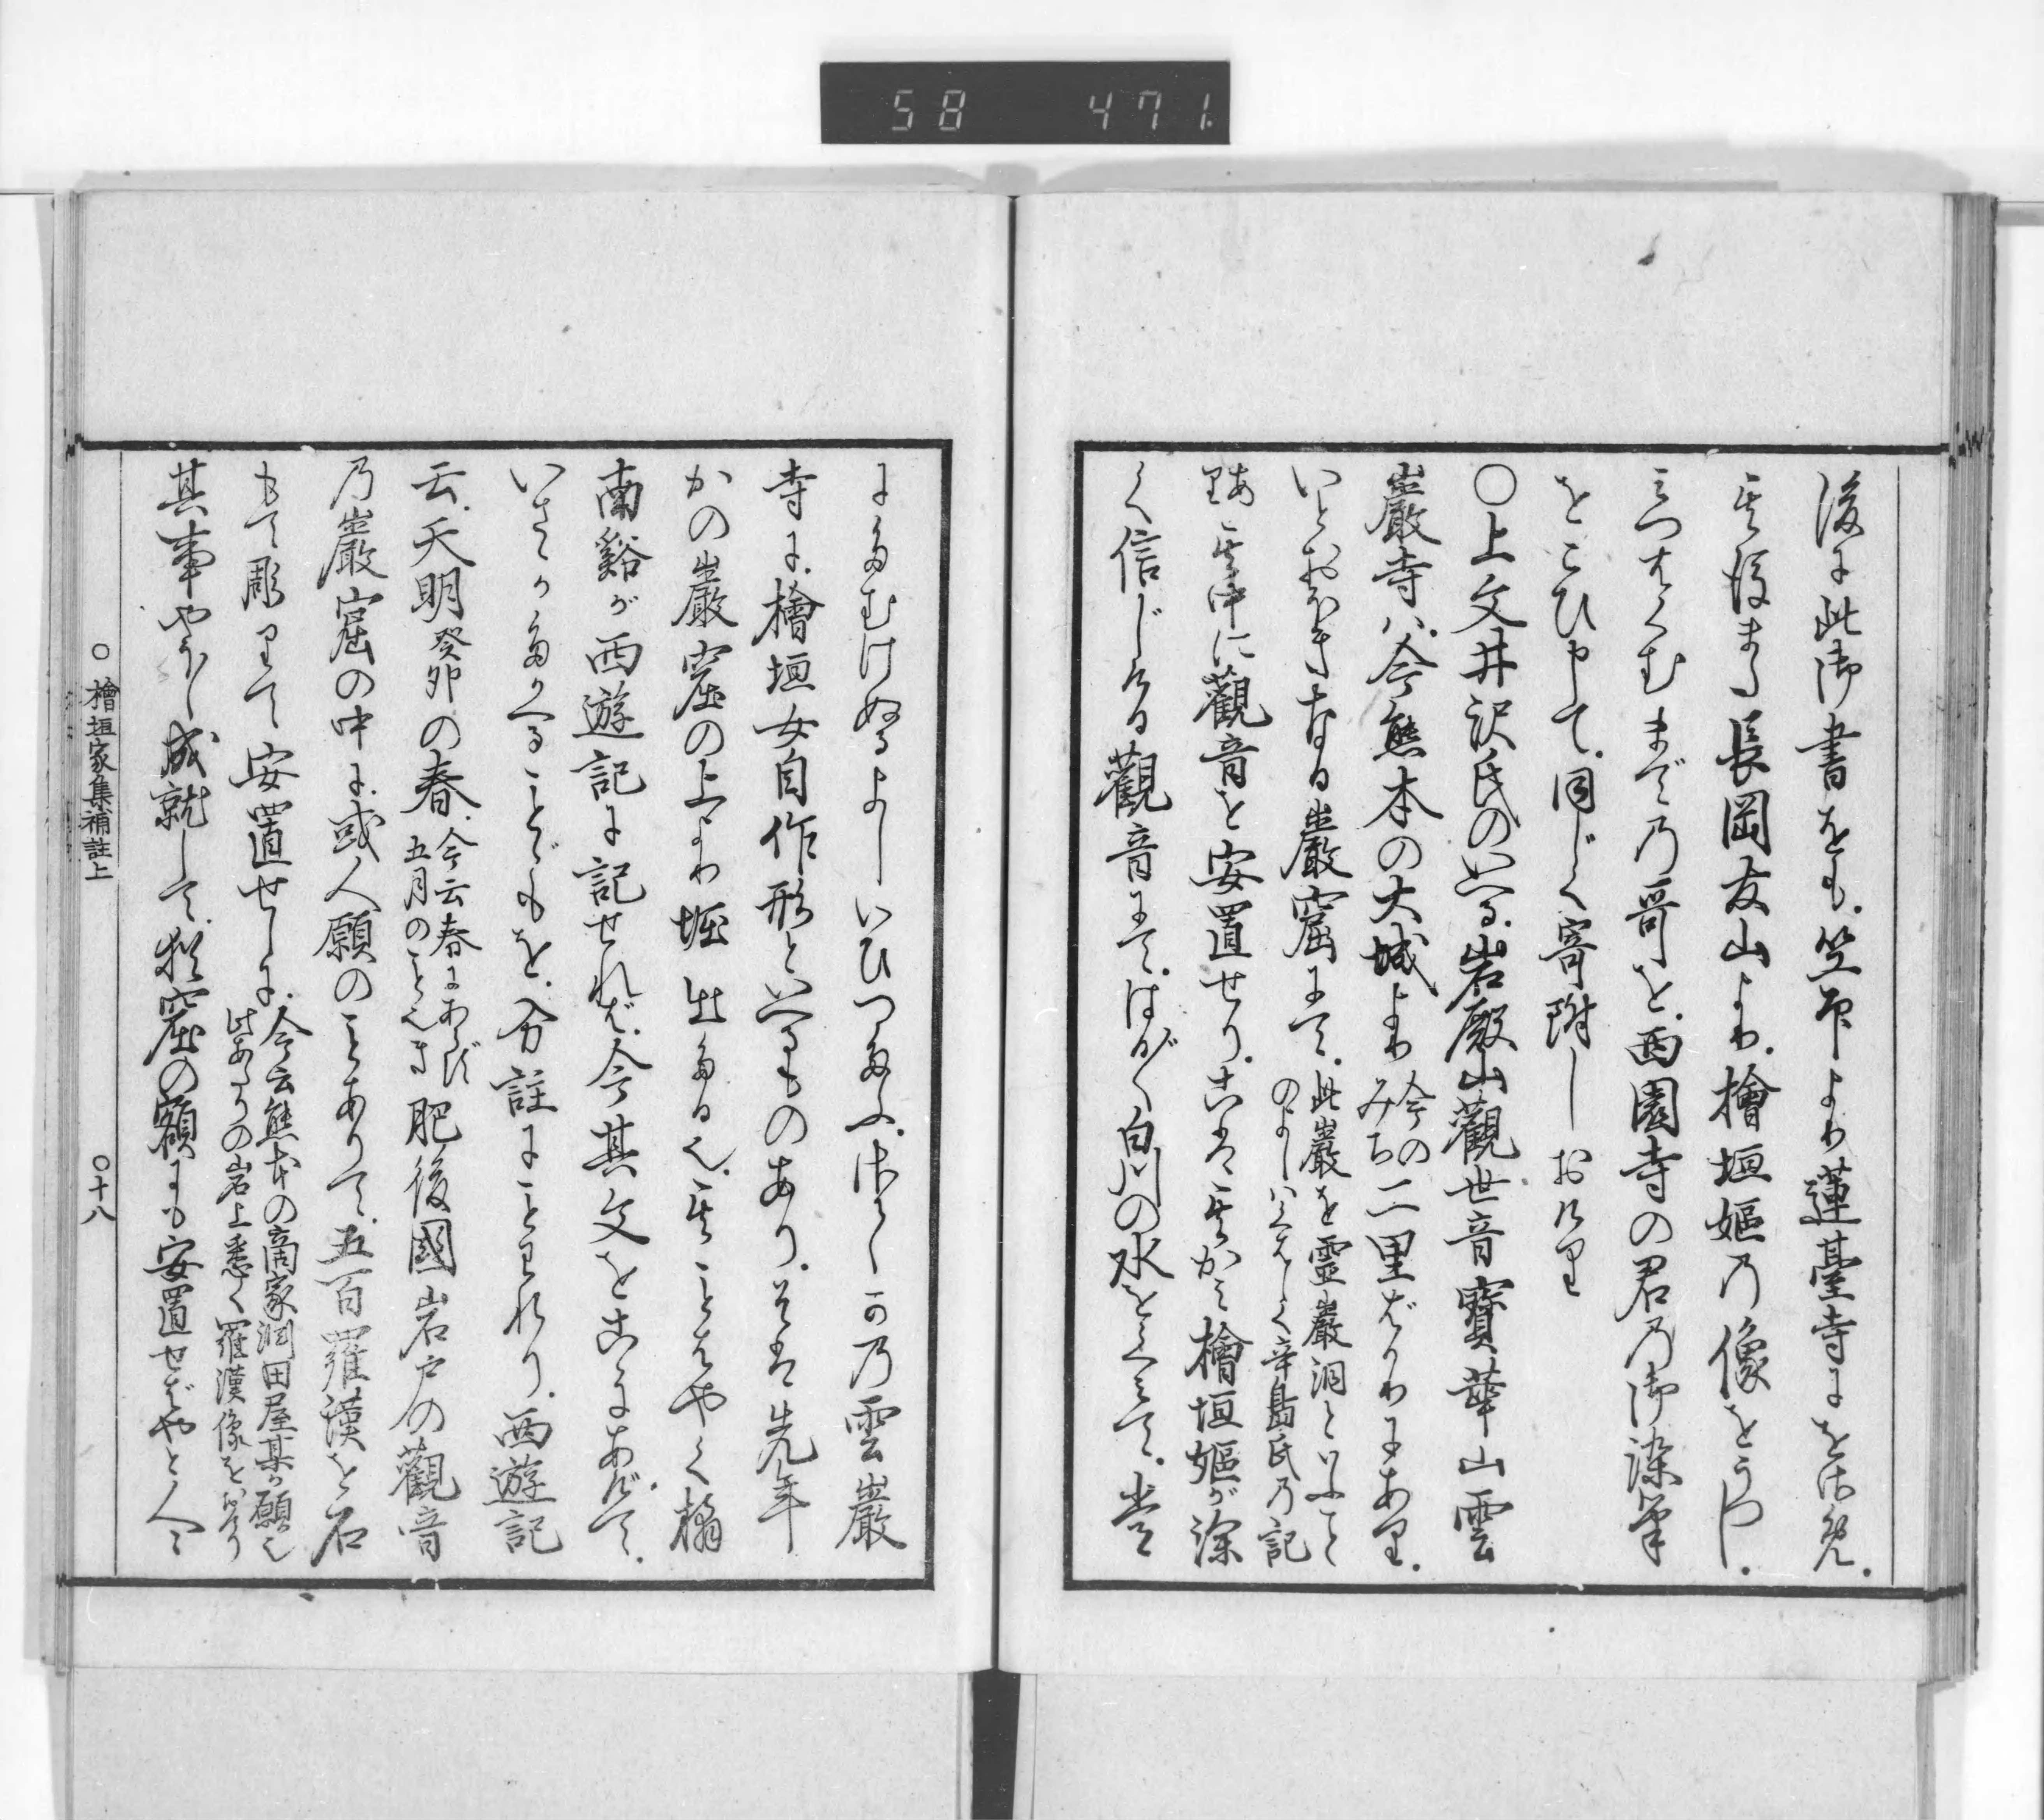 58 471
後に此御書をも、笠印より蓮臺寺にをさめ、
其後また長岡友山より、檜垣嫗乃像をうつし、
みつはくむまで乃哥を、西園寺の君乃御染筆
をこひ申て、同じく寄附しおけり
○上文井沢氏のいへる、岩殿山觀世音寶華山雲
巖寺ハ、今熊本の大城より今のみち二里ばかりにあり、
いとおほきなる巖窟にて、此巖を霊巖洞といふことのよしハくはしく辛島氏乃記にあり
其中に觀音を安置せり、こは其かみ檜垣嫗が深
く信じける觀音にて、はるばる白川の水をくみて、
にたむけぬるよしいひつたふ、さてこの乃雲巖
寺に、檜垣女自作形といへるものあり、そは先年
かの巖窟の上より堀出たる也、其ことはやく橘
南谿が西遊記に記せれば、今其文をこゝにあげて、
いさゝかたがへることどもを、分註にことわれり、西遊記
云、天明癸卯の春、今云春にあらず五月のことなり肥後國岩戸の觀音
乃巖窟の中に、或人願のことありて、五百羅漢を石
もて彫りて安置せしに、今云熊本の商家渕田屋某が願也此あたりの岩上悉く羅漢像をおけり
其事やゝ成就して、猶窟の額にも安置せばやと人々
○檜垣家集補註上 ○十八